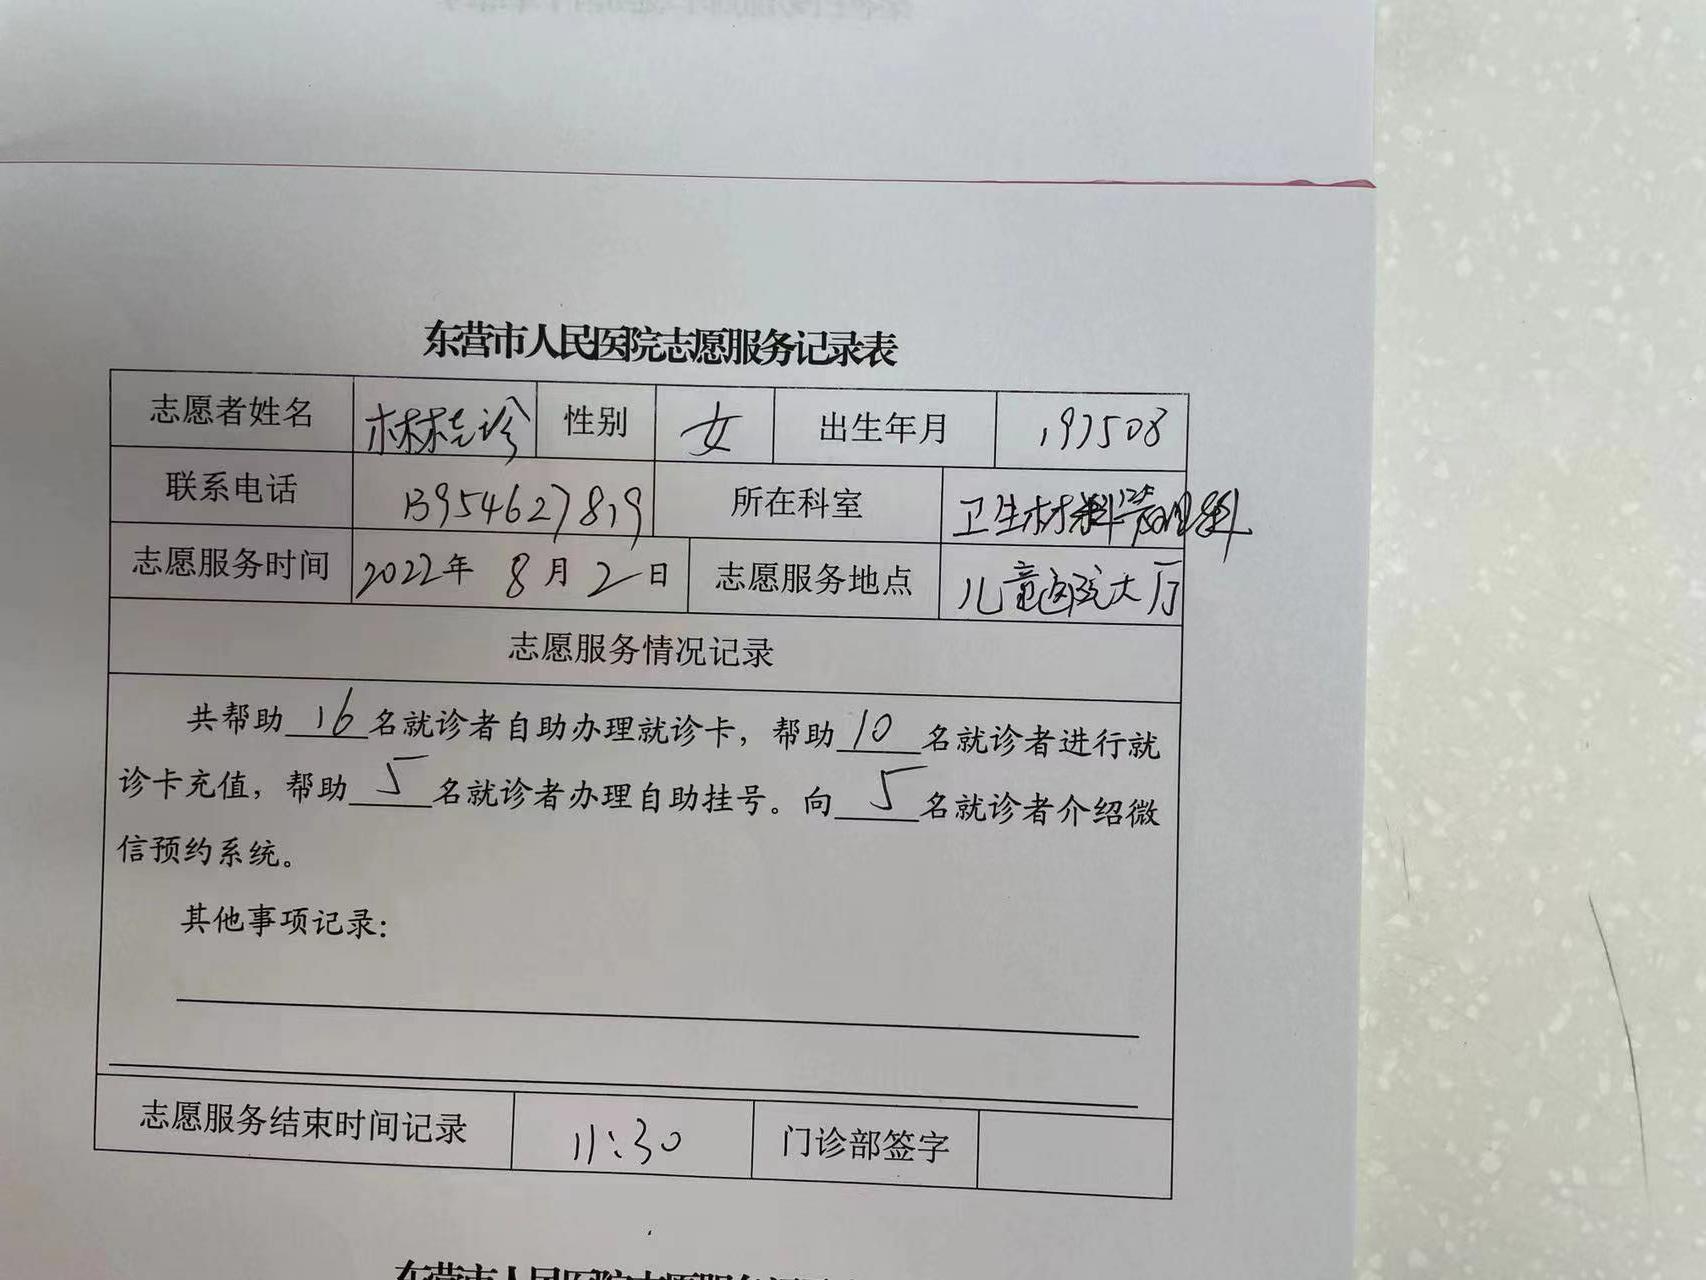 东营市人民医院志愿服务记录表
志愿者姓名 性别 女 出生年月 197508
联系电话 13954627819 所在科室 卫生材料管理科
志愿服务时间 2022年 8月2日 志愿服务地点 儿童医院大厅
志愿服务情况记录
共帮助16名就诊者自助办理就诊卡，帮助10名就诊者进行就
诊卡充值，帮助5名就诊者办理自助挂号。向5名就诊者介绍微
信预约系统。
其他事项记录：
志愿服务结束时间记录 11:30 门诊部签字
东营市人民医院志愿服务记录表